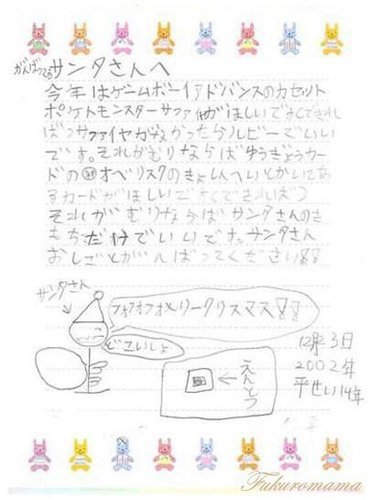 がんばってる
サンタさんへ
今年はゲームボーイアドバンスのカセット
ポケットモンスターサファイヤがほしいですできれ
ばっサファイヤがなかったらルビーでいい
です。それがむりならばゆうぎょうカー
ドの オベリスクのきょしんへいとかいてあ
るカードがほしいです(できれば)
それがむりならばサンタさんのき
もちだけでいいです。サンタさん
おしごとがんばってください!!
サンタさん
フォフォフォメリークリスマス!!
どこいしょ
えんとつ
12月23日
2002年
平せい14年
Fukuromama